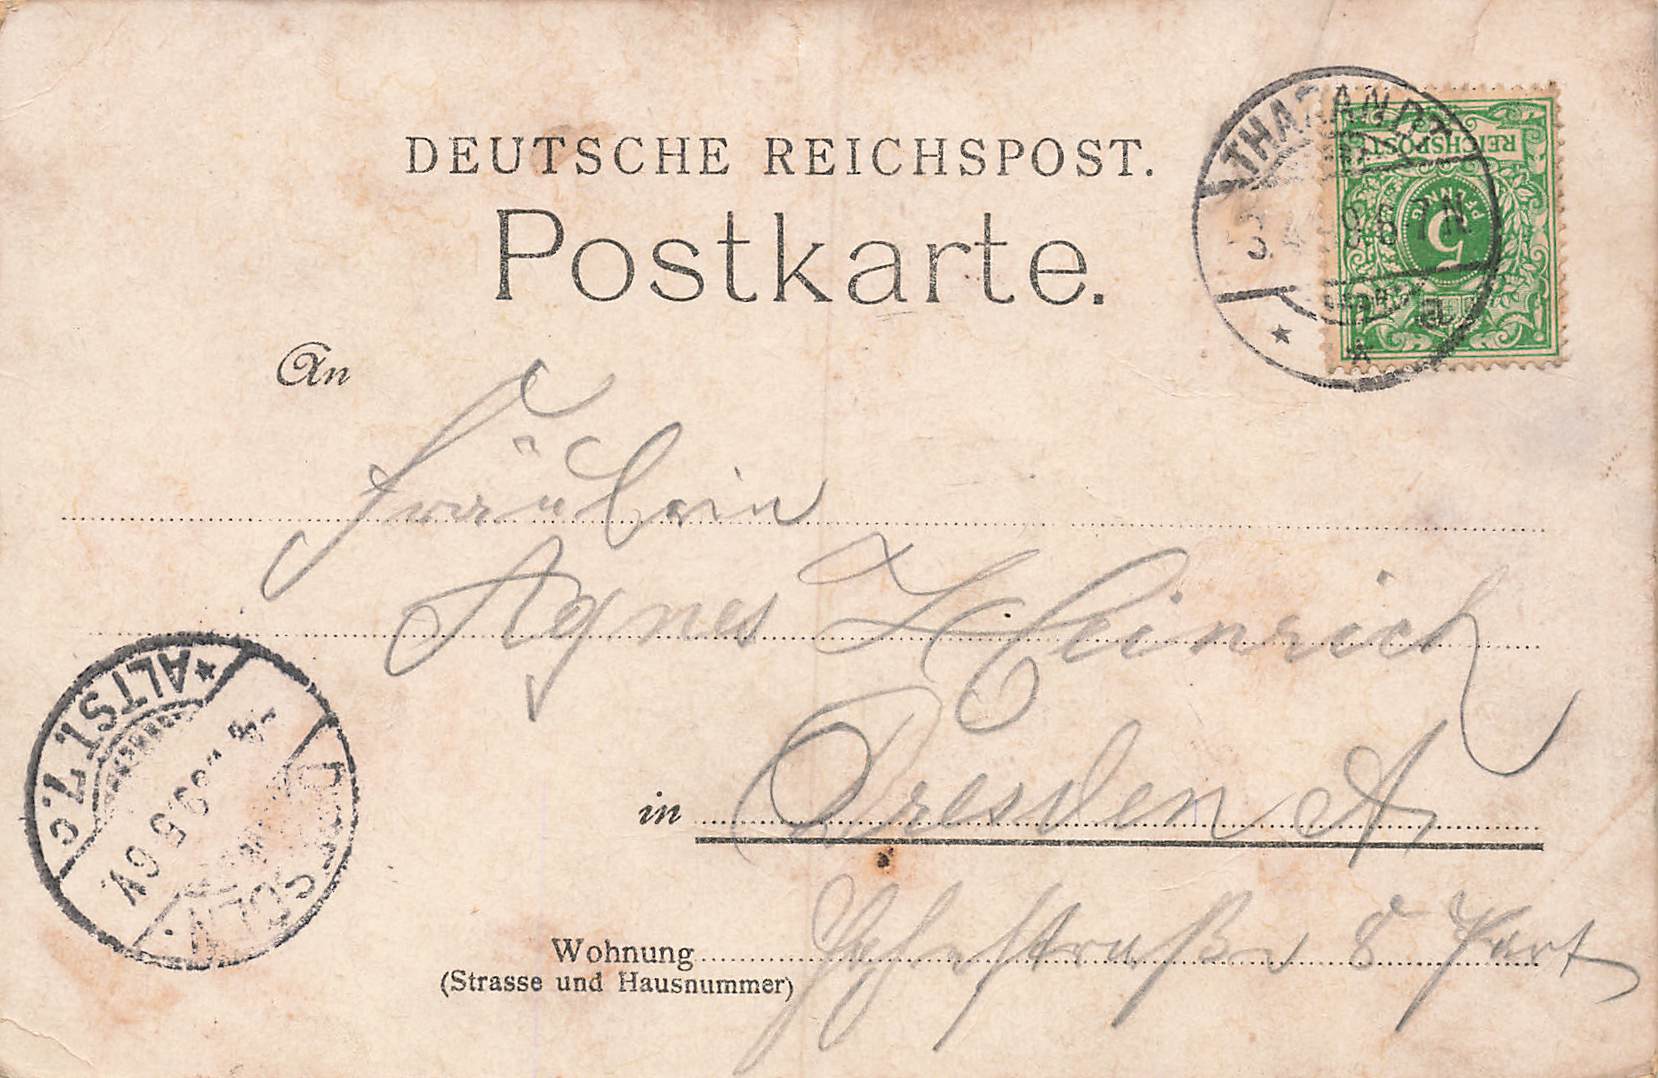 DEUTSCHE REICHSPOST.
Postkarte.
THARANDT
REICHSPOST
5
PFENNIG
An
Fräulein
Agnes Heinrich
in Dresden A
Wohnung 8 Part
(Strasse und Hausnummer)
*ALTST. 7. c